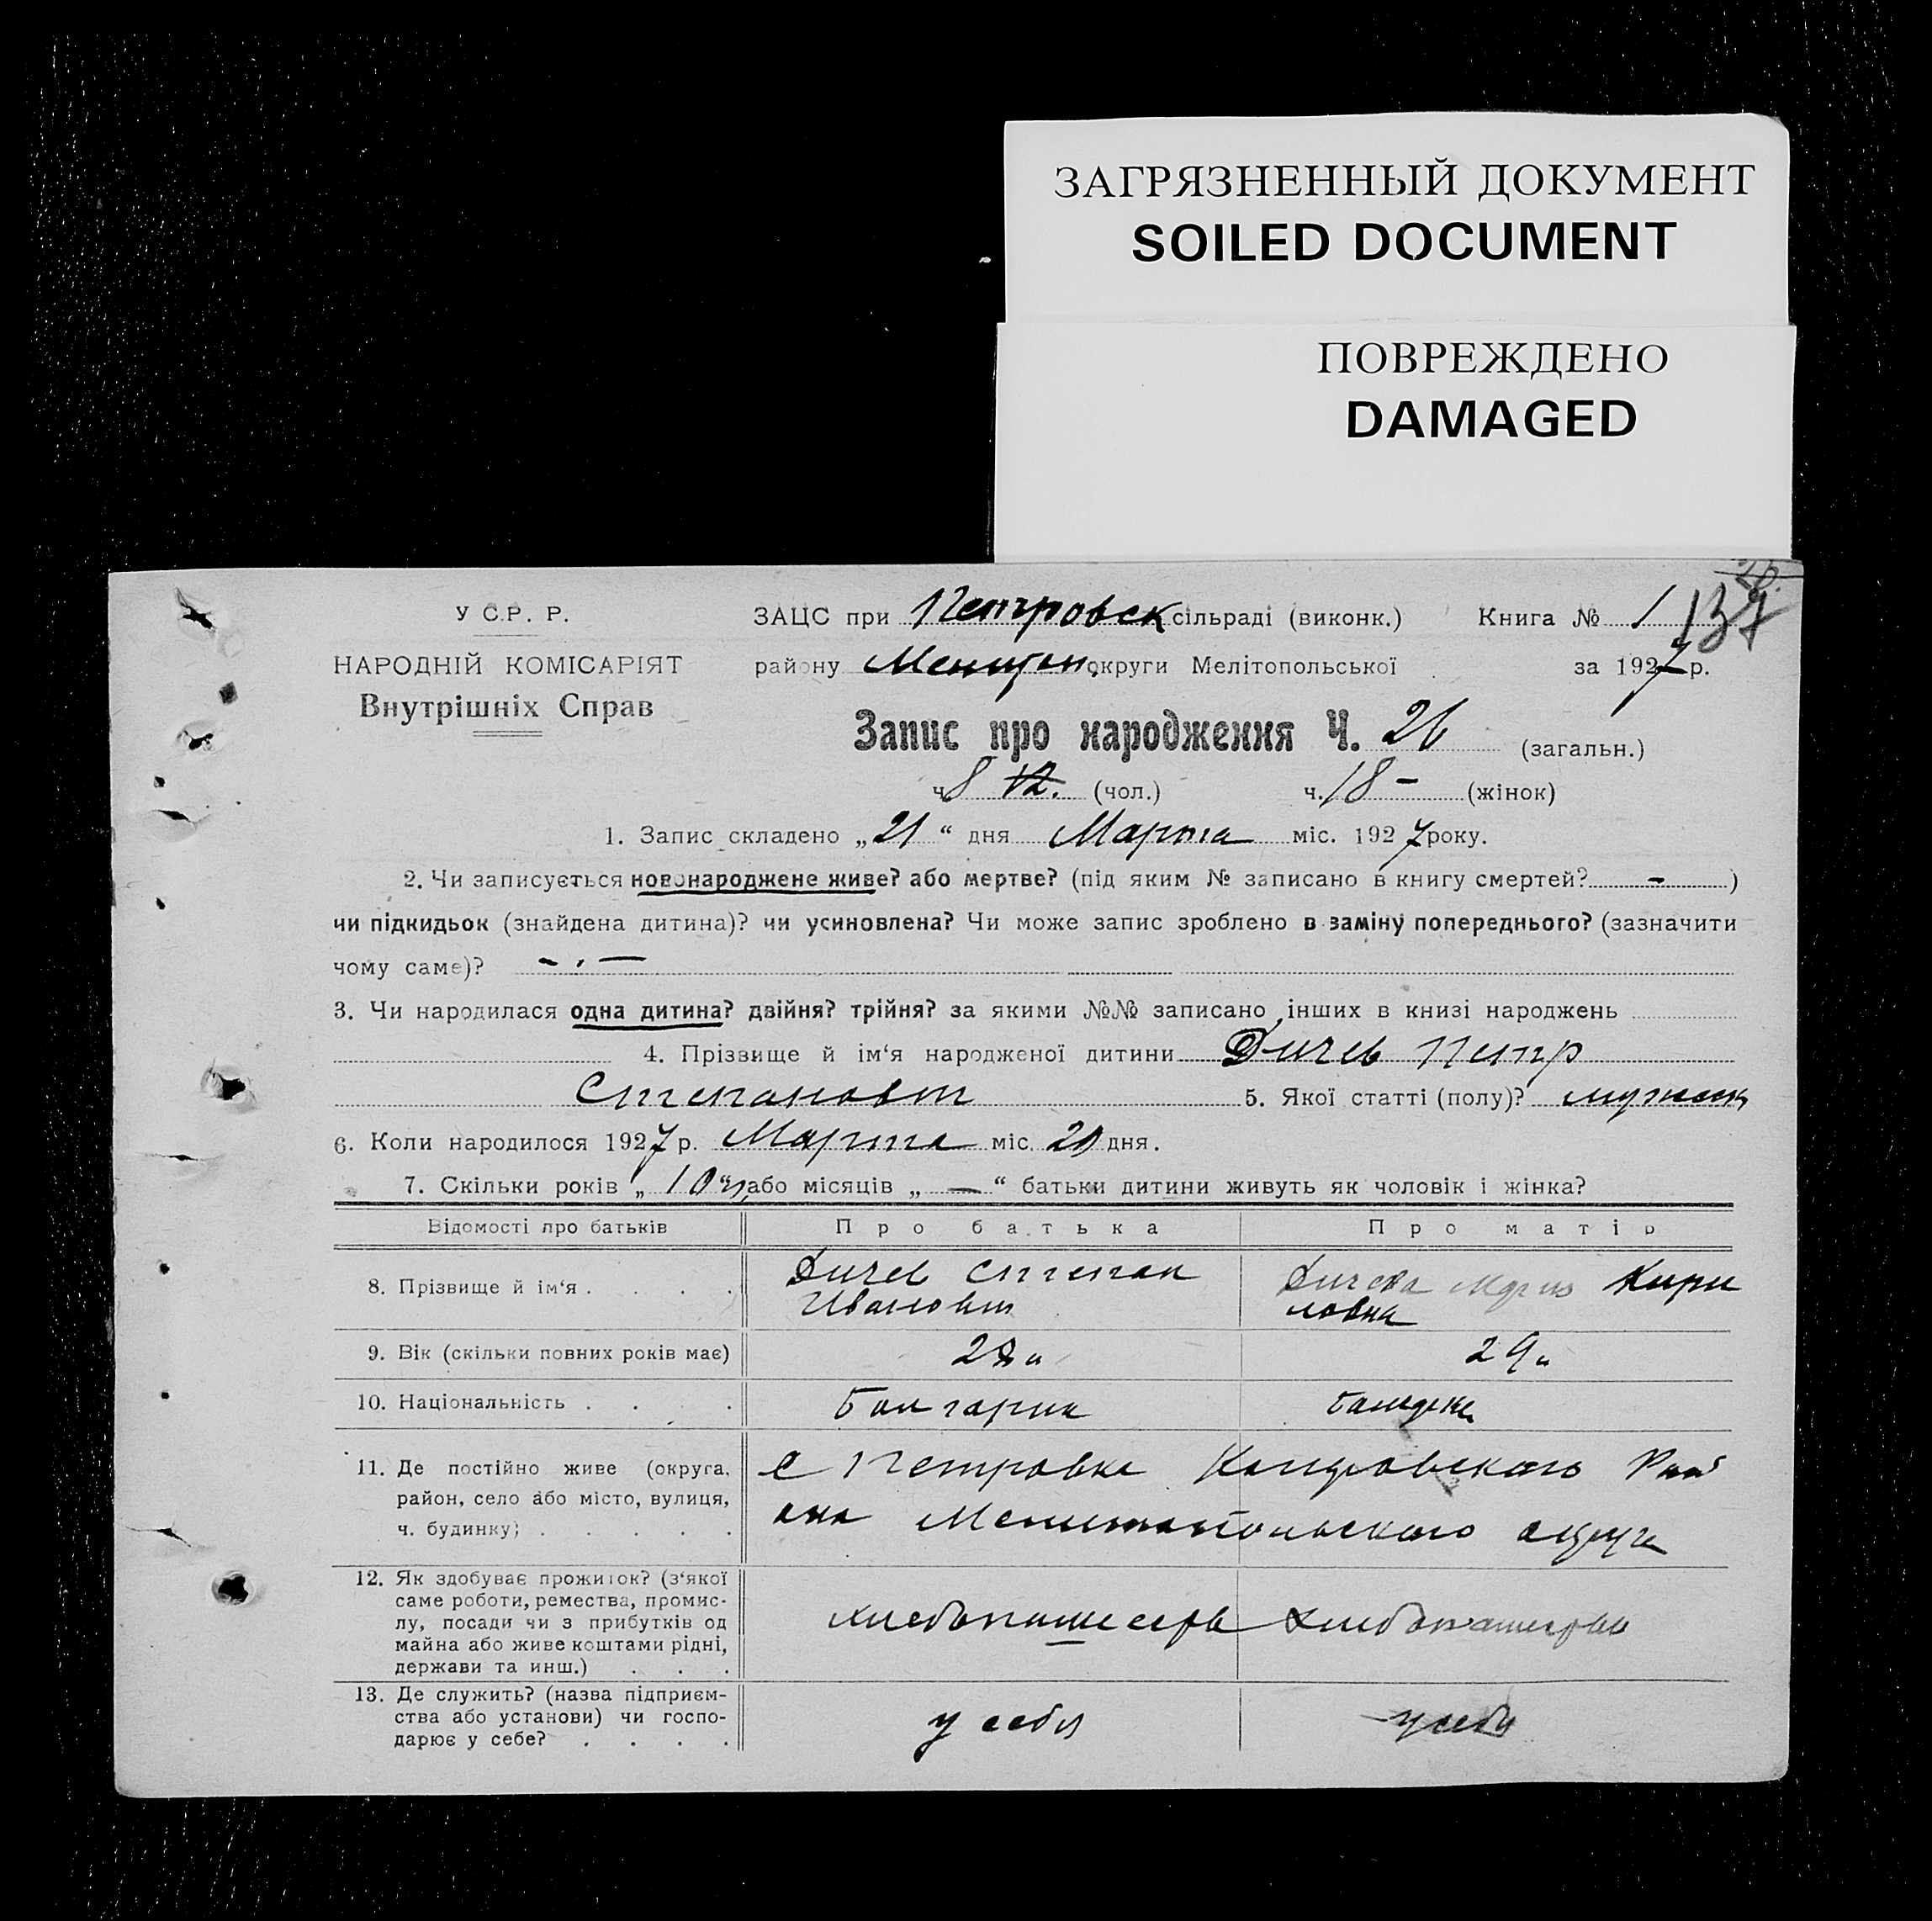 ЗАГРЯЗНЕННЫЙ ДОКУМЕНТ
SOILED DOCUMENT
ПОВРЕЖДЕНО
DAMAGED
137
У С.Р. Р.
НАРОДНІЙ КОМІСАРІЯТ
Внутрішніх Справ
ЗАЦС при Петровск сільраді (виконк.) Книга № 1
району округи Мелітопольської за 1927 р.
Запис про народження Ч. 26 (загальн.)
ч. 8 12. (чол.) ч. 18 - (жінок)
1. Запис складено „21“ дня Марта міс. 1927 року.
2. Чи записується новонароджене живе? або мертве? (під яким № записано в книгу смертей? - )
чи підкидьок (знайдена дитина)? чи усиновлена? Чи може запис зроблено в заміну попереднього? (зазначити
чому саме)?
3. Чи народилася одна дитина? двійня? трійня? за якими №№ записано інших в книзі народжень
4. Прізвище й ім‘я народженої дитини Дичев Петр
Степанович 5. Якої статті (полу)?
6. Коли народилося 1927 р. Марта міс. 20 дня.
7. Скільки років „10 або місяців „—“ батьки дитини живуть як чоловік і жінка?
Відомості про батьків Про батька Про матір
8. Прізвище й ім‘я . . . . Дичев Степан Дичева Мария Кири
Иванович ловна
9. Вік (скільки повних років має) 29
10. Національність . . . . Болгарин
11. Де постійно живе (округа, район, село або місто, вулиця, ч. будинку) . . . . . с Петровка Рай
она Мелитопольского округа
12. Як здобуває прожиток? (з‘якої
саме роботи, ремества, промис-
лу, посади чи з прибутків од
майна або живе коштами рідні,
держави та инш.) . . .
13. Де служить? (назва підприєм-
ства або установи) чи госпо-
дарює у себе? . . . . у себя у себя